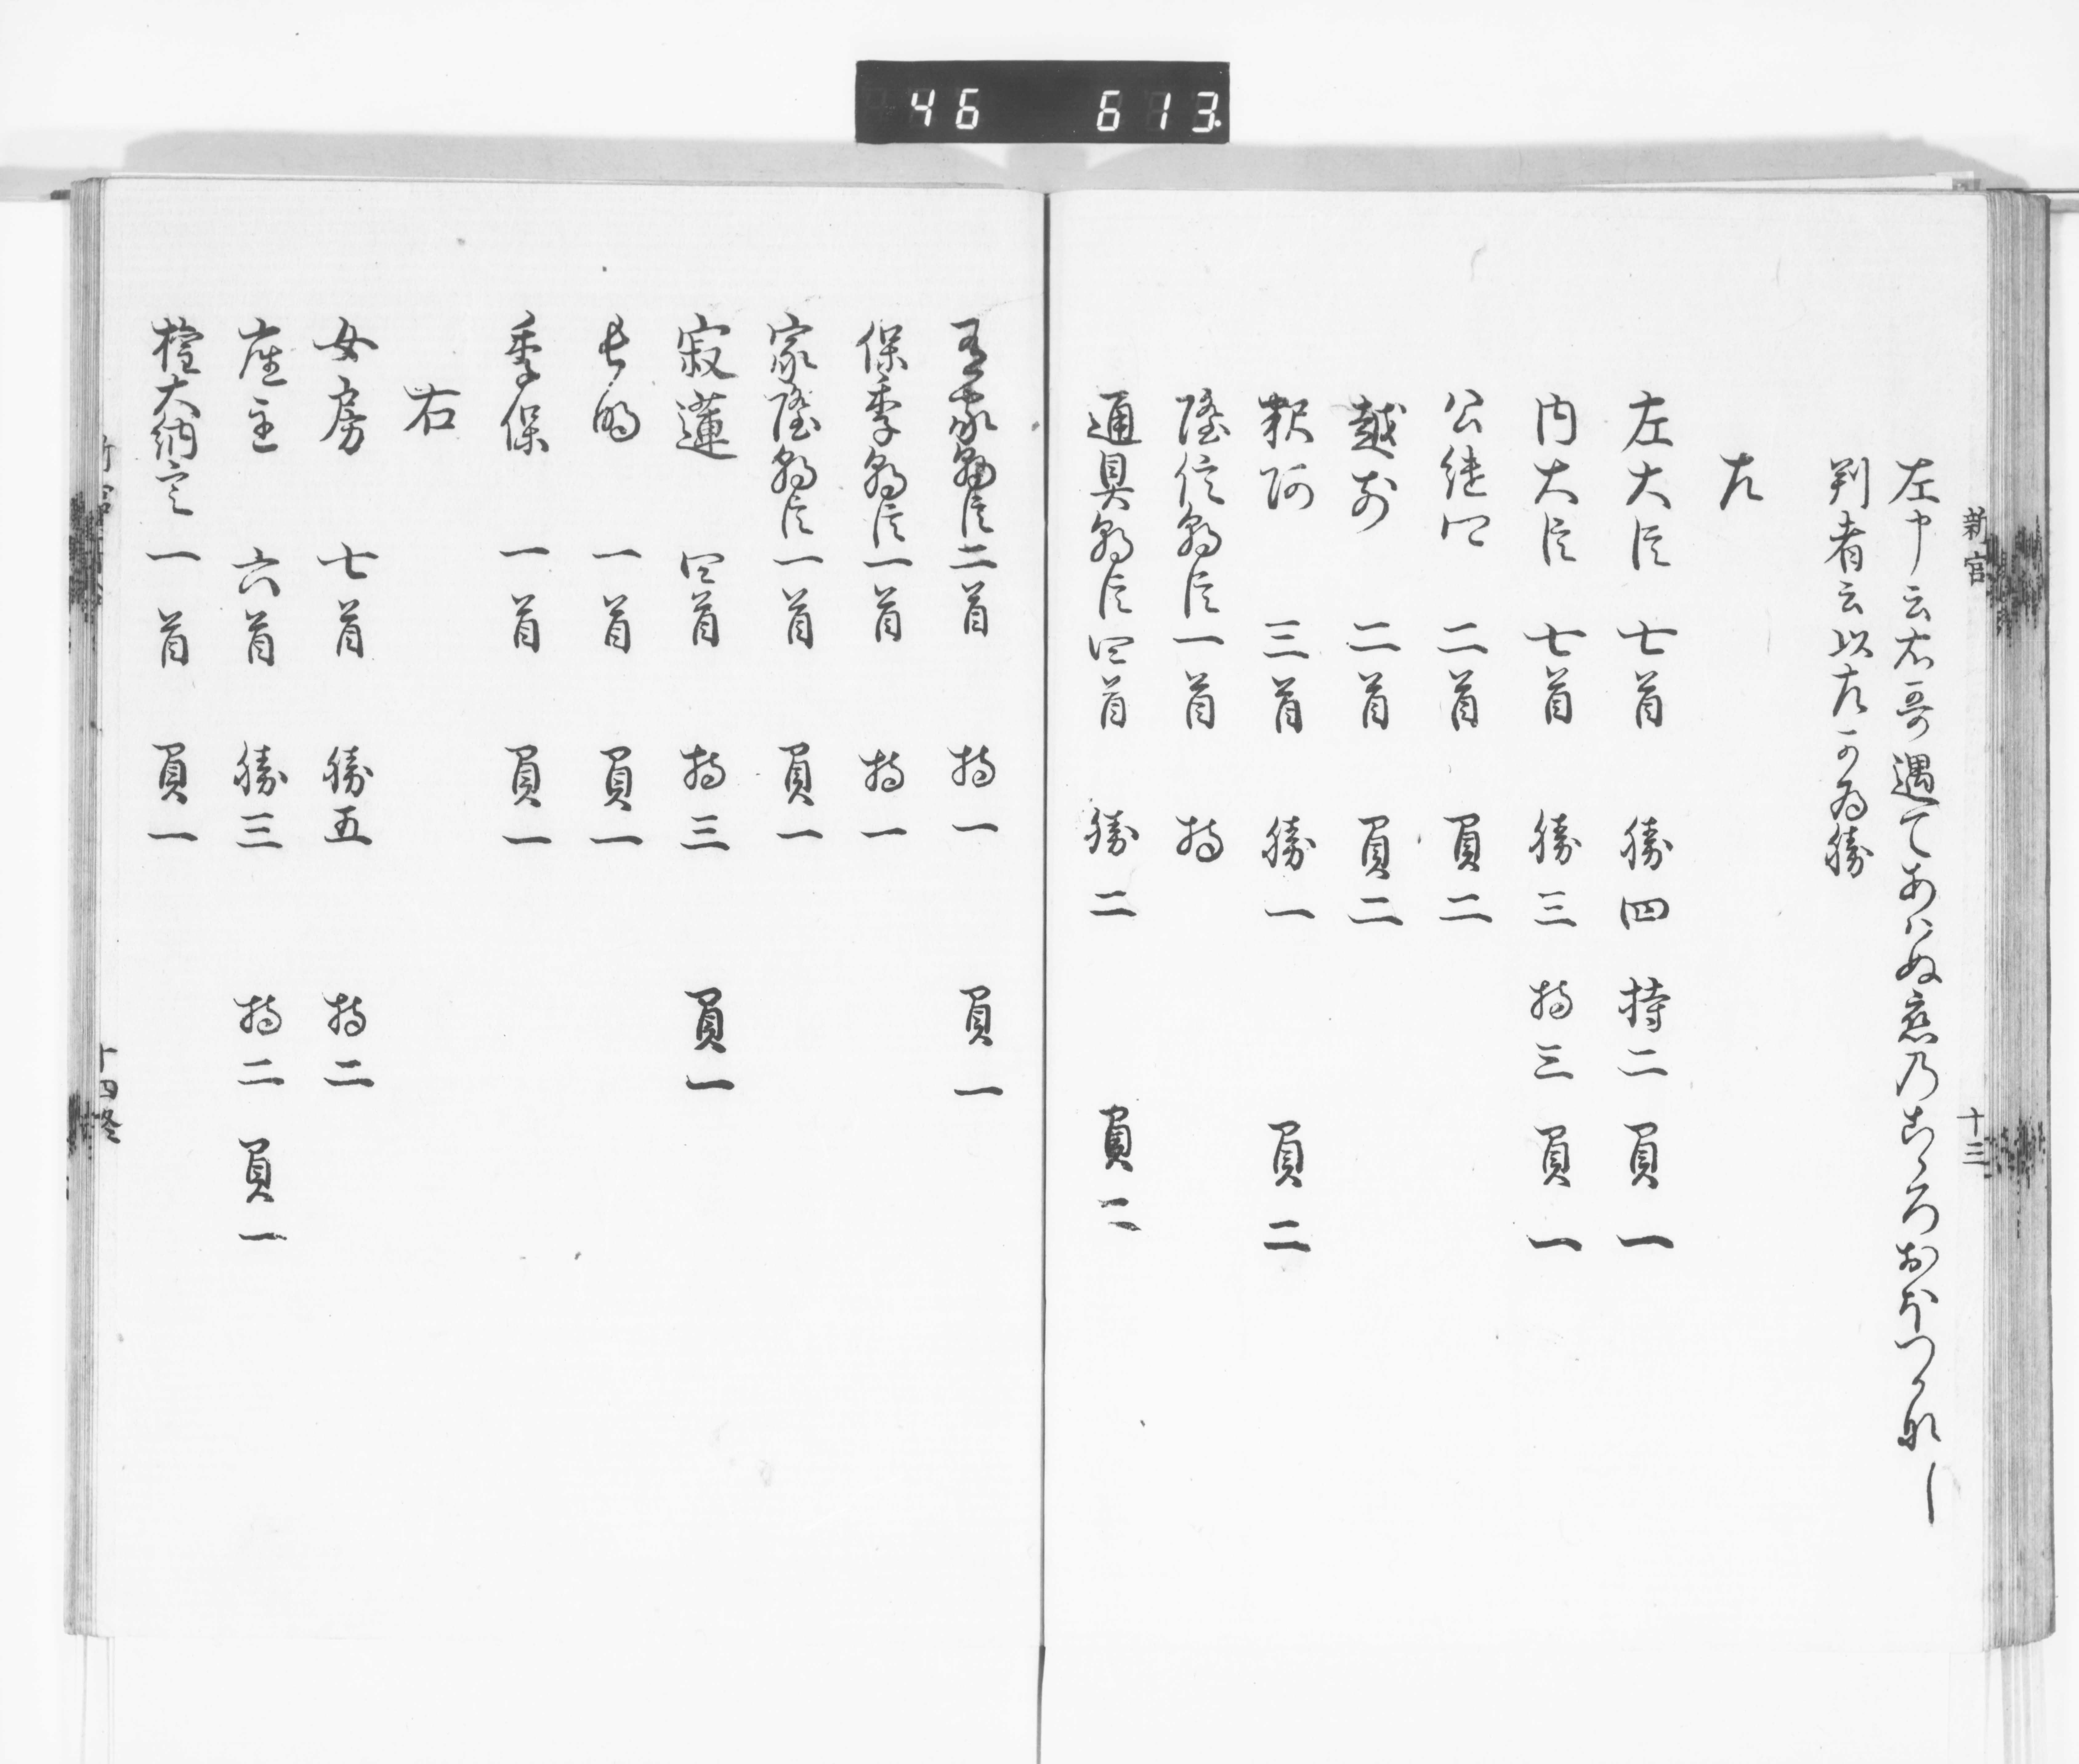 46 613
新宮
十三
左中云右哥遇てあはぬ恋乃こゝろおほつかなし
判者云以左可為勝
左
左大臣 七首 勝四 持二 負一
内大臣 七首 勝三 持三 負一
公継卿 二首 負二
越前 二首 負二
釈阿 三首 勝一 負二
隆信朝臣 一首 持
通具朝臣 四首 勝二 負二
有家朝臣 二首 持一 負一
保季朝臣 一首 持一
家隆朝臣 一首 負一
寂蓮 四首 持三 負一
長明 一首 負一
季保 一首 負一
右
女房 七首 勝五 持二
座主 六首 勝三 持二 負一
権大納言 一首 負一
十四終